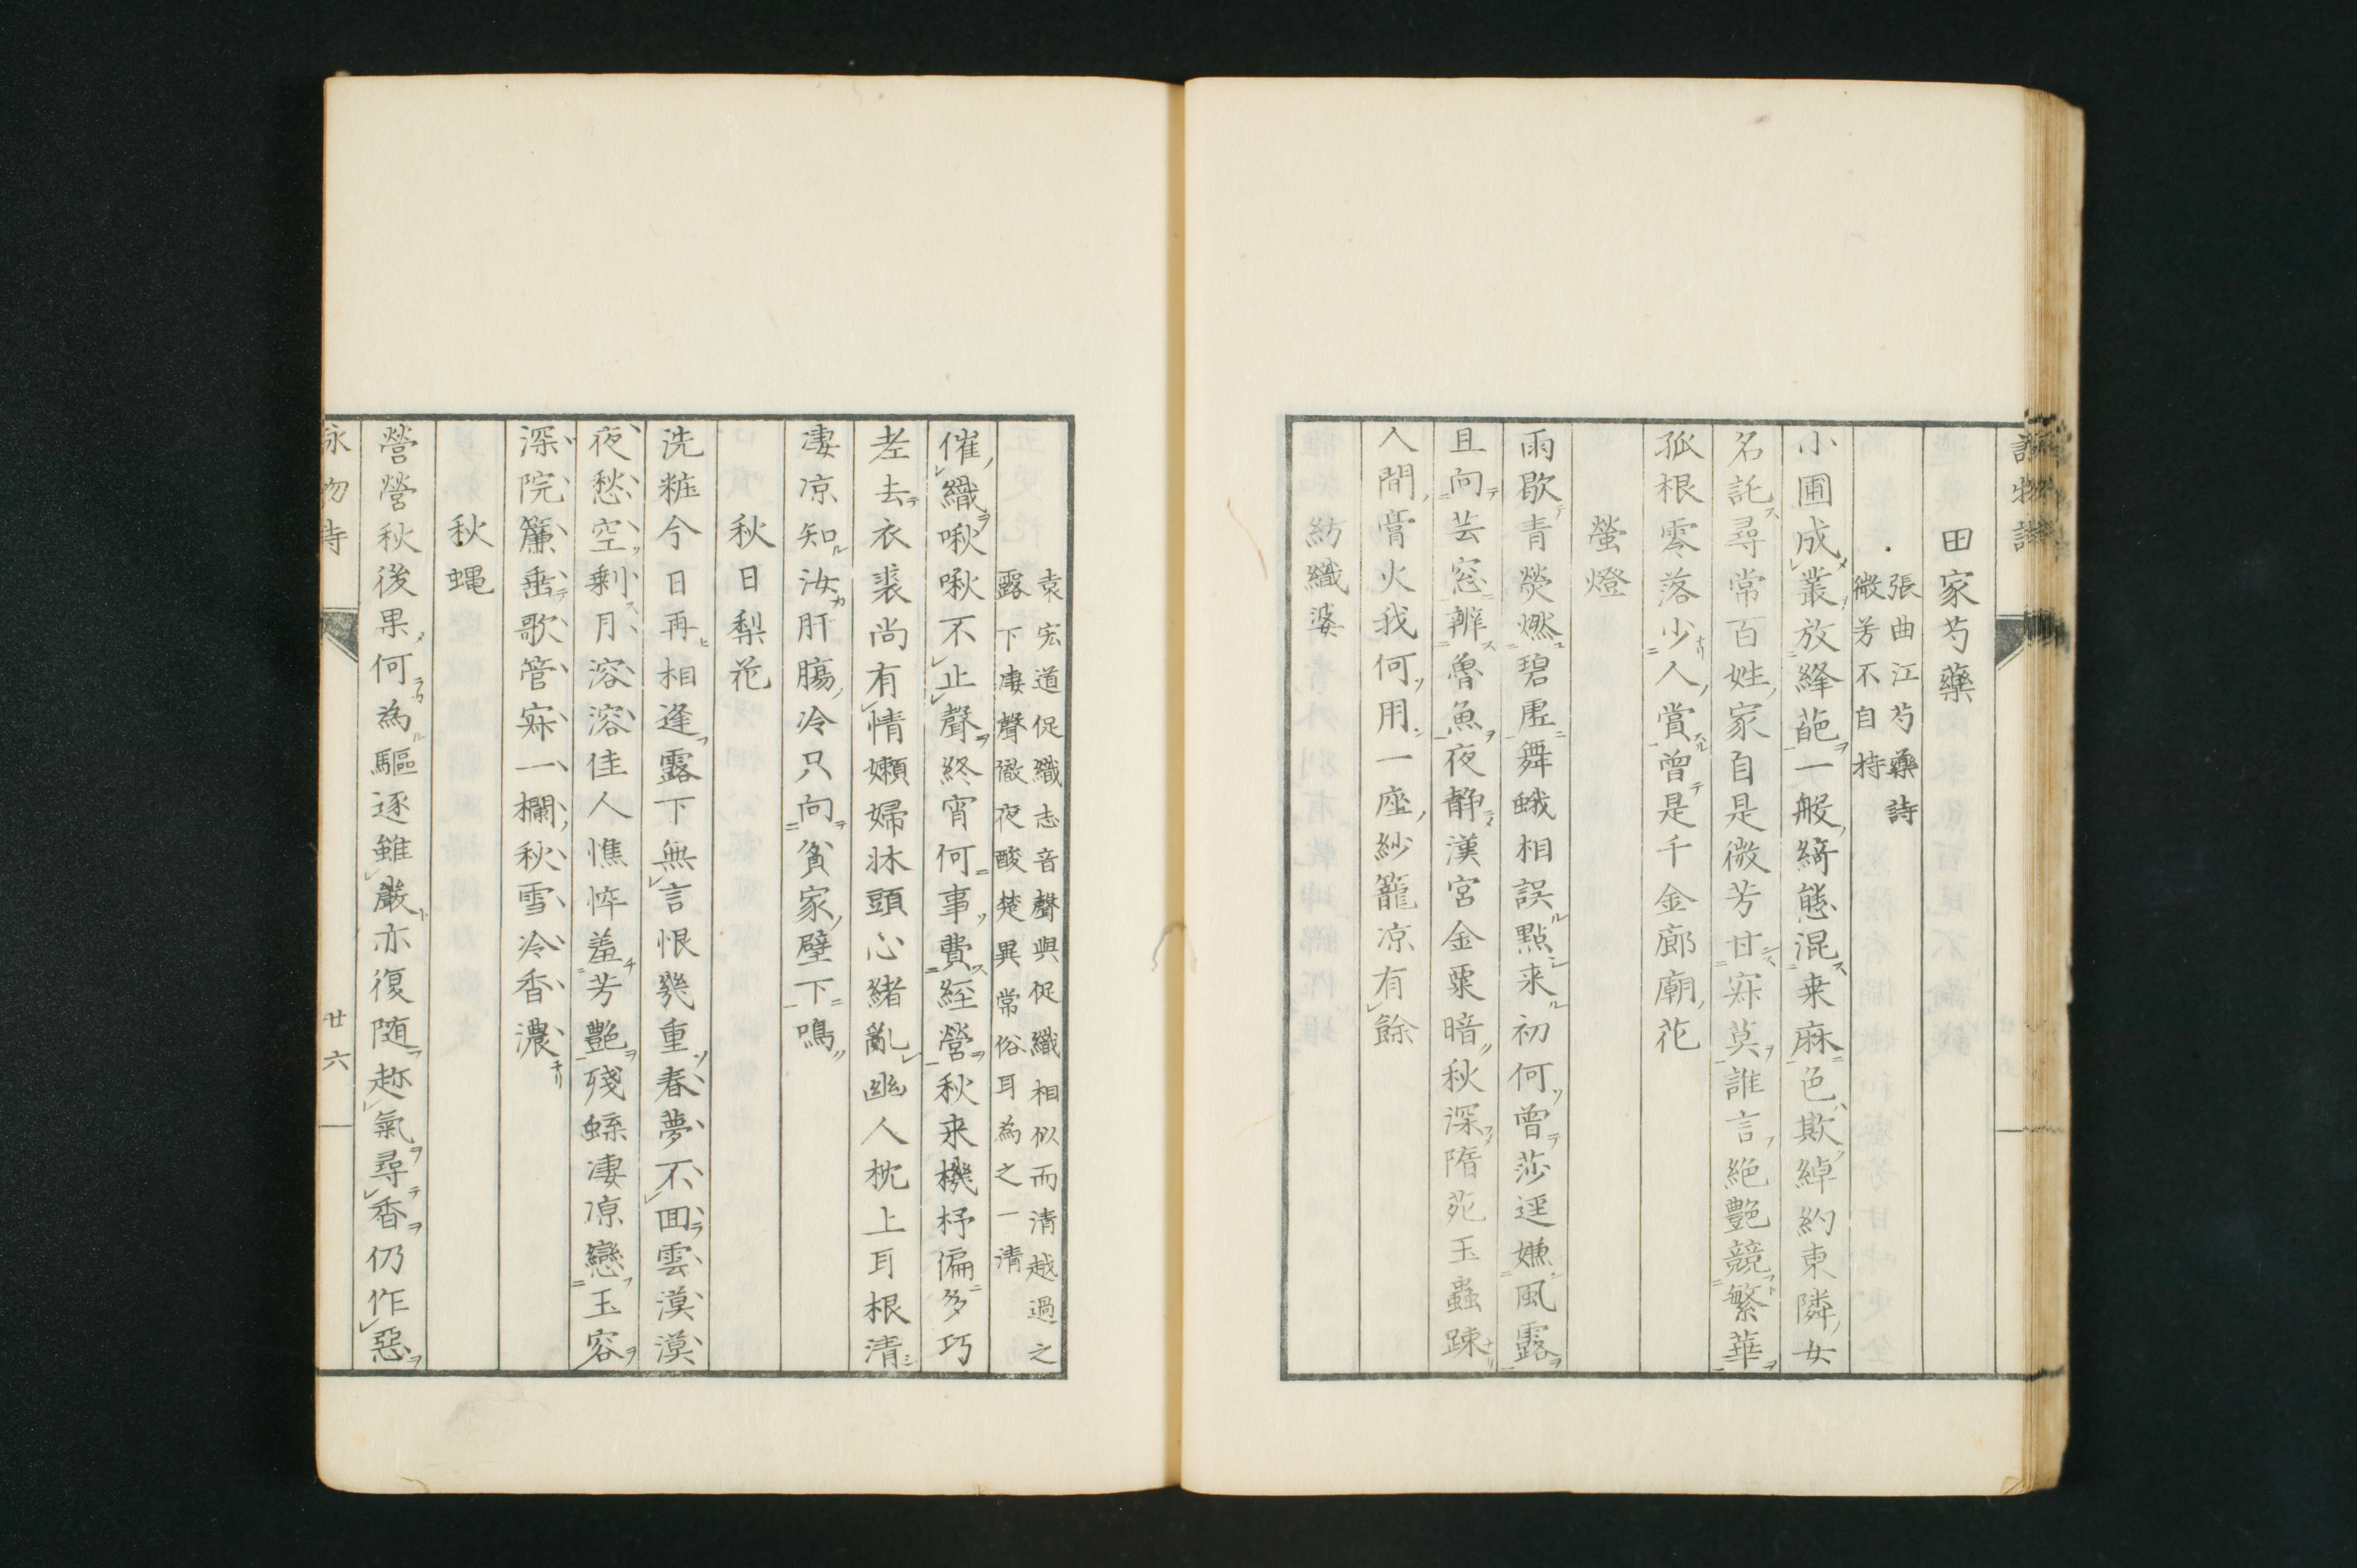 田家芍藥
張曲江芍藥詩
微芳不自持
小圃成叢放絳葩一般綺態混桒麻色欺綽約東隣女
名託尋常百姓家自是微芳甘寂莫誰言絶艷競繁華
孤根零落少人賞曾是千金廊廟花
螢燈
雨歇青熒燃碧虚舞蛾相誤點来初何曾莎逕嫌風露
且向芸窓辨魯魚夜静漢宮金粟暗秋深隋苑玉蟲踈
人間膏火我何用一座紗籠凉有餘
紡織婆
袁宏道促織志音聲與促織相似而清越過之
露下凄聲徹夜酸楚異常俗耳為之一清
催織啾啾不止聲終宵何事費經營秋来機杼偏多巧
老去衣裘尚有情嬾婦牀頭心緒亂幽人枕上耳根清
凄凉知汝肝腸冷只向貧家壁下鳴
秋日梨花
洗粧今日再相逢露下無言恨幾重春夢不回雲漠漠
夜愁空剰月溶溶佳人憔悴羞芳艷殘蝶凄凉戀玉容
深院簾垂歌管寂一欄秋雪冷香濃
秋蝿
營營秋後果何為驅逐雖嚴亦復随趂氣尋香仍作惡
詠物詩
廿六